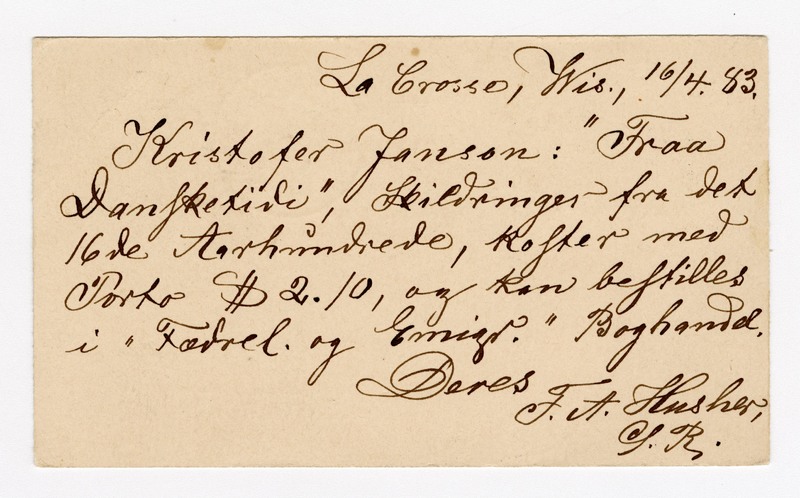 La Crosse, Wis., 16/4. 83.
Kristofer Janson: "Fraa
Dansketidi", Skildringer fra det
16de Aarhundrede, koster med
Porto $ 2.10, og kan bestilles
i "Fædrel. og Emigr." Boghandel.
Deres
F. A. Husher,
S. R.